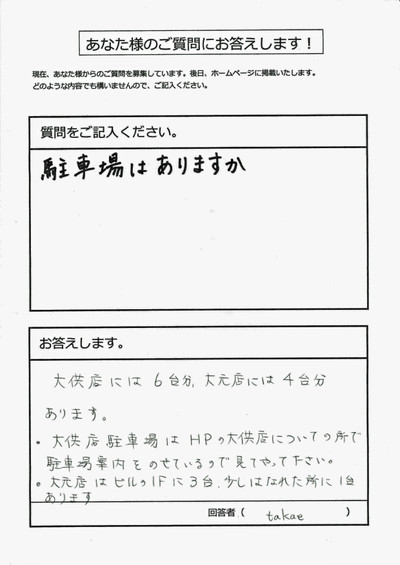 あなた様のご質問にお答えします！
現在、あなた様からのご質問を募集しています。後日、ホームページに掲載いたします。
どのような内容でも構いませんので、ご記入ください。
質問をご記入ください。
駐車場はありますか
お答えします。
大供店には6台分,大元店には4台分
あります。
・大供店駐車場はHPの大供店についての所で
駐車場案内をのせているので見てやって下さい。
・大元店はビルの1Fに3台.少しはなれた所に1台
あります
回答者（ takae ）